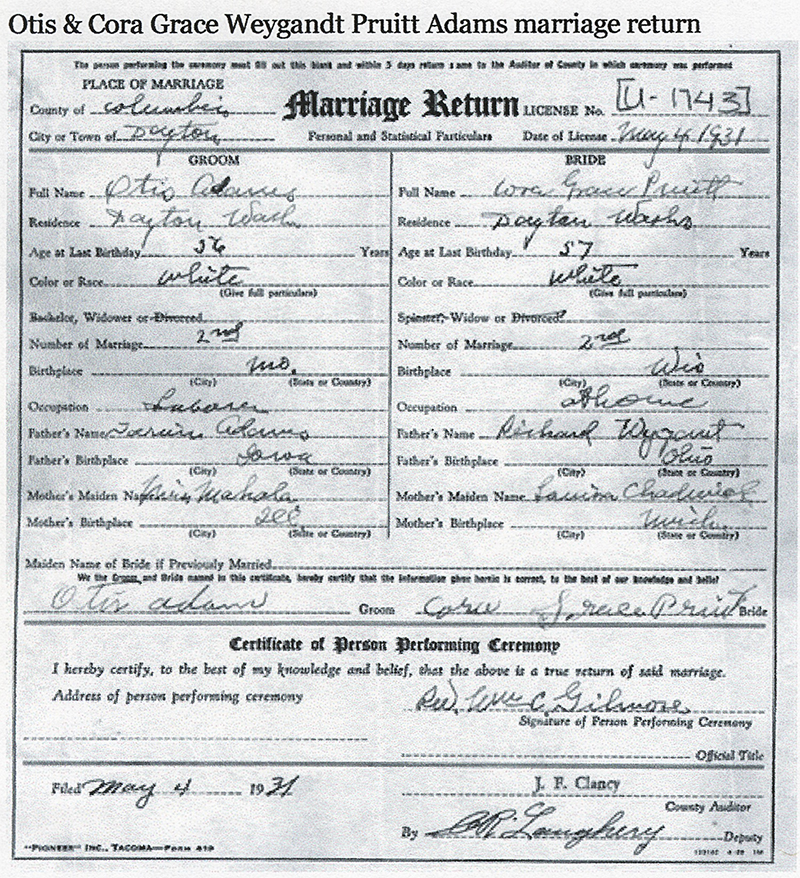 Otis & Cora Grace Weygandt Pruitt Adams marriage return
The person performing the ceremony must fill out this blank and within 3 days return same to the Auditor of County in which ceremony was performed
PLACE OF MARRIAGE
County of Columbia
City or Town of Dayton
Marriage Return
Personal and Statistical Particulars
LICENSE No. [U-1743]
Date of License May 4, 1931
GROOM
Full Name Otis Adams
Residence Dayton Wash
Age at Last Birthday 56 Years
Color or Race White
(Give full particulars)
Bachelor, Widower or Divorced
Number of Marriage 2nd
Birthplace Mo.
(City) (State or Country)
Occupation Laborer
Father's Name Adams
Father's Birthplace Iowa
(City) (State or Country)
Mother's Maiden Name Miss Mahala
Mother's Birthplace Ill
(City) (State or Country)
BRIDE
Full Name Cora Grace Pruitt
Residence Dayton Washn
Age at Last Birthday 57 Years
Color or Race White
(Give full particulars)
Spinster, Widow or Divorced
Number of Marriage 2nd
Birthplace Wis
(City) (State or Country)
Occupation at home
Father's Name Richard Wygant
Father's Birthplace Ohio
(City) (State or Country)
Mother's Maiden Name Louisa Chadwick
Mother's Birthplace Mich.
(City) (State or Country)
Maiden Name of Bride if Previously Married
We the Groom and Bride named in this certificate, hereby certify that the information given herein is correct, to the best of our knowledge and belief
Otis Adams Groom Cora Grace Pruitt Bride
Certificate of Person Performing Ceremony
I hereby certify, to the best of my knowledge and belief, that the above is a true return of said marriage.
Address of person performing ceremony
Rev. Wm C. Gilmore
Signature of Person Performing Ceremony
Official Title
Filed May 4 1931
J. F. Clancy
County Auditor
By Laughery Deputy
"PIONEER" INC., TACOMA—FORM 419